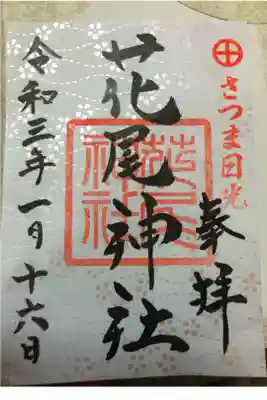 さつま日光
奉拝
花尾神社
令和三年一月十六日
花尾神社